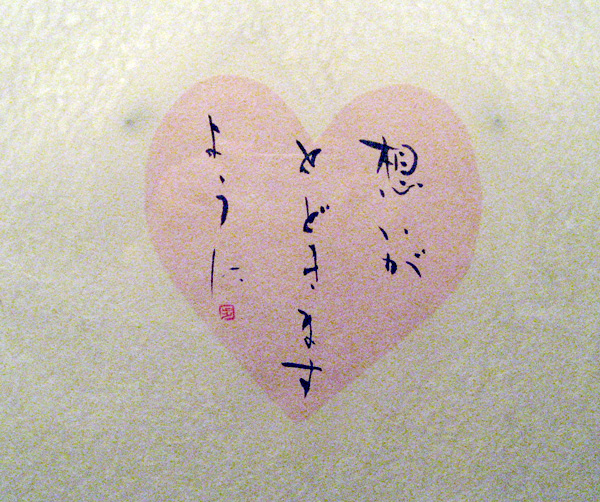 想いが
とどきます
ように